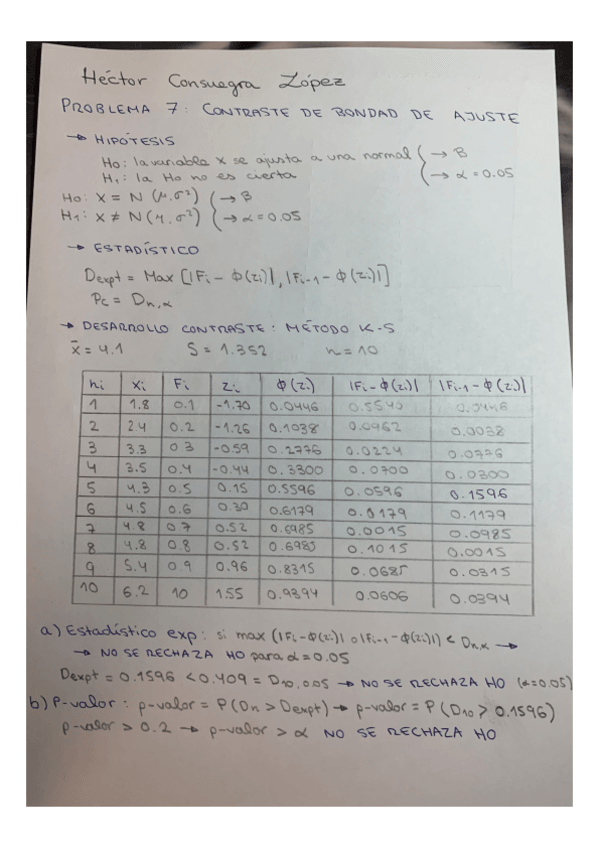 Héctor Consuegra López
PROBLEMA 7: CONTRASTE DE BONDAD DE AJUSTE
→ HIPÓTESIS
Ho: la variable x se ajusta a una normal → B
H1: la Ho no es cierta → α = 0.05
Ho: X = N (μ, σ²) → B
H1: X ≠ N (μ, σ²) → α = 0.05
→ ESTADÍSTICO
Dexpt = Max [|Fi - Φ(zi)|, |Fi-1 - Φ(zi)|]
Pc = Dn,α
→ DESARROLLO CONTRASTE: MÉTODO K-S
x̄ = 4.1 S = 1.352 n = 10
ni xi Fi zi Φ(zi) |Fi - Φ(zi)| |Fi-1 - Φ(zi)|
1 1.8 0.1 -1.70 0.0446 0.5540 0.0446
2 2.4 0.2 -1.26 0.1038 0.0962 0.0038
3 3.3 0.3 -0.59 0.2776 0.0224 0.0776
4 3.5 0.4 -0.44 0.3300 0.0700 0.0300
5 4.3 0.5 0.15 0.5596 0.0596 0.1596
6 4.5 0.6 0.30 0.6179 0.0179 0.1179
7 4.8 0.7 0.52 0.6985 0.0015 0.0985
8 4.8 0.8 0.52 0.6985 0.1015 0.0015
9 5.4 0.9 0.96 0.8315 0.0685 0.0315
10 6.2 10 1.55 0.9394 0.0606 0.0394
a) Estadístico exp: si max (|Fi - Φ(zi)| o |Fi-1 - Φ(zi)|) < Dn,α →
→ NO SE RECHAZA HO para α = 0.05
Dexpt = 0.1596 < 0.409 = D10,0.05 → NO SE RECHAZA HO (α = 0.05)
b) P-valor: p-valor = P(Dn > Dexpt) → p-valor = P(D10 > 0.1596)
p-valor > 0.2 → p-valor > α NO SE RECHAZA HO